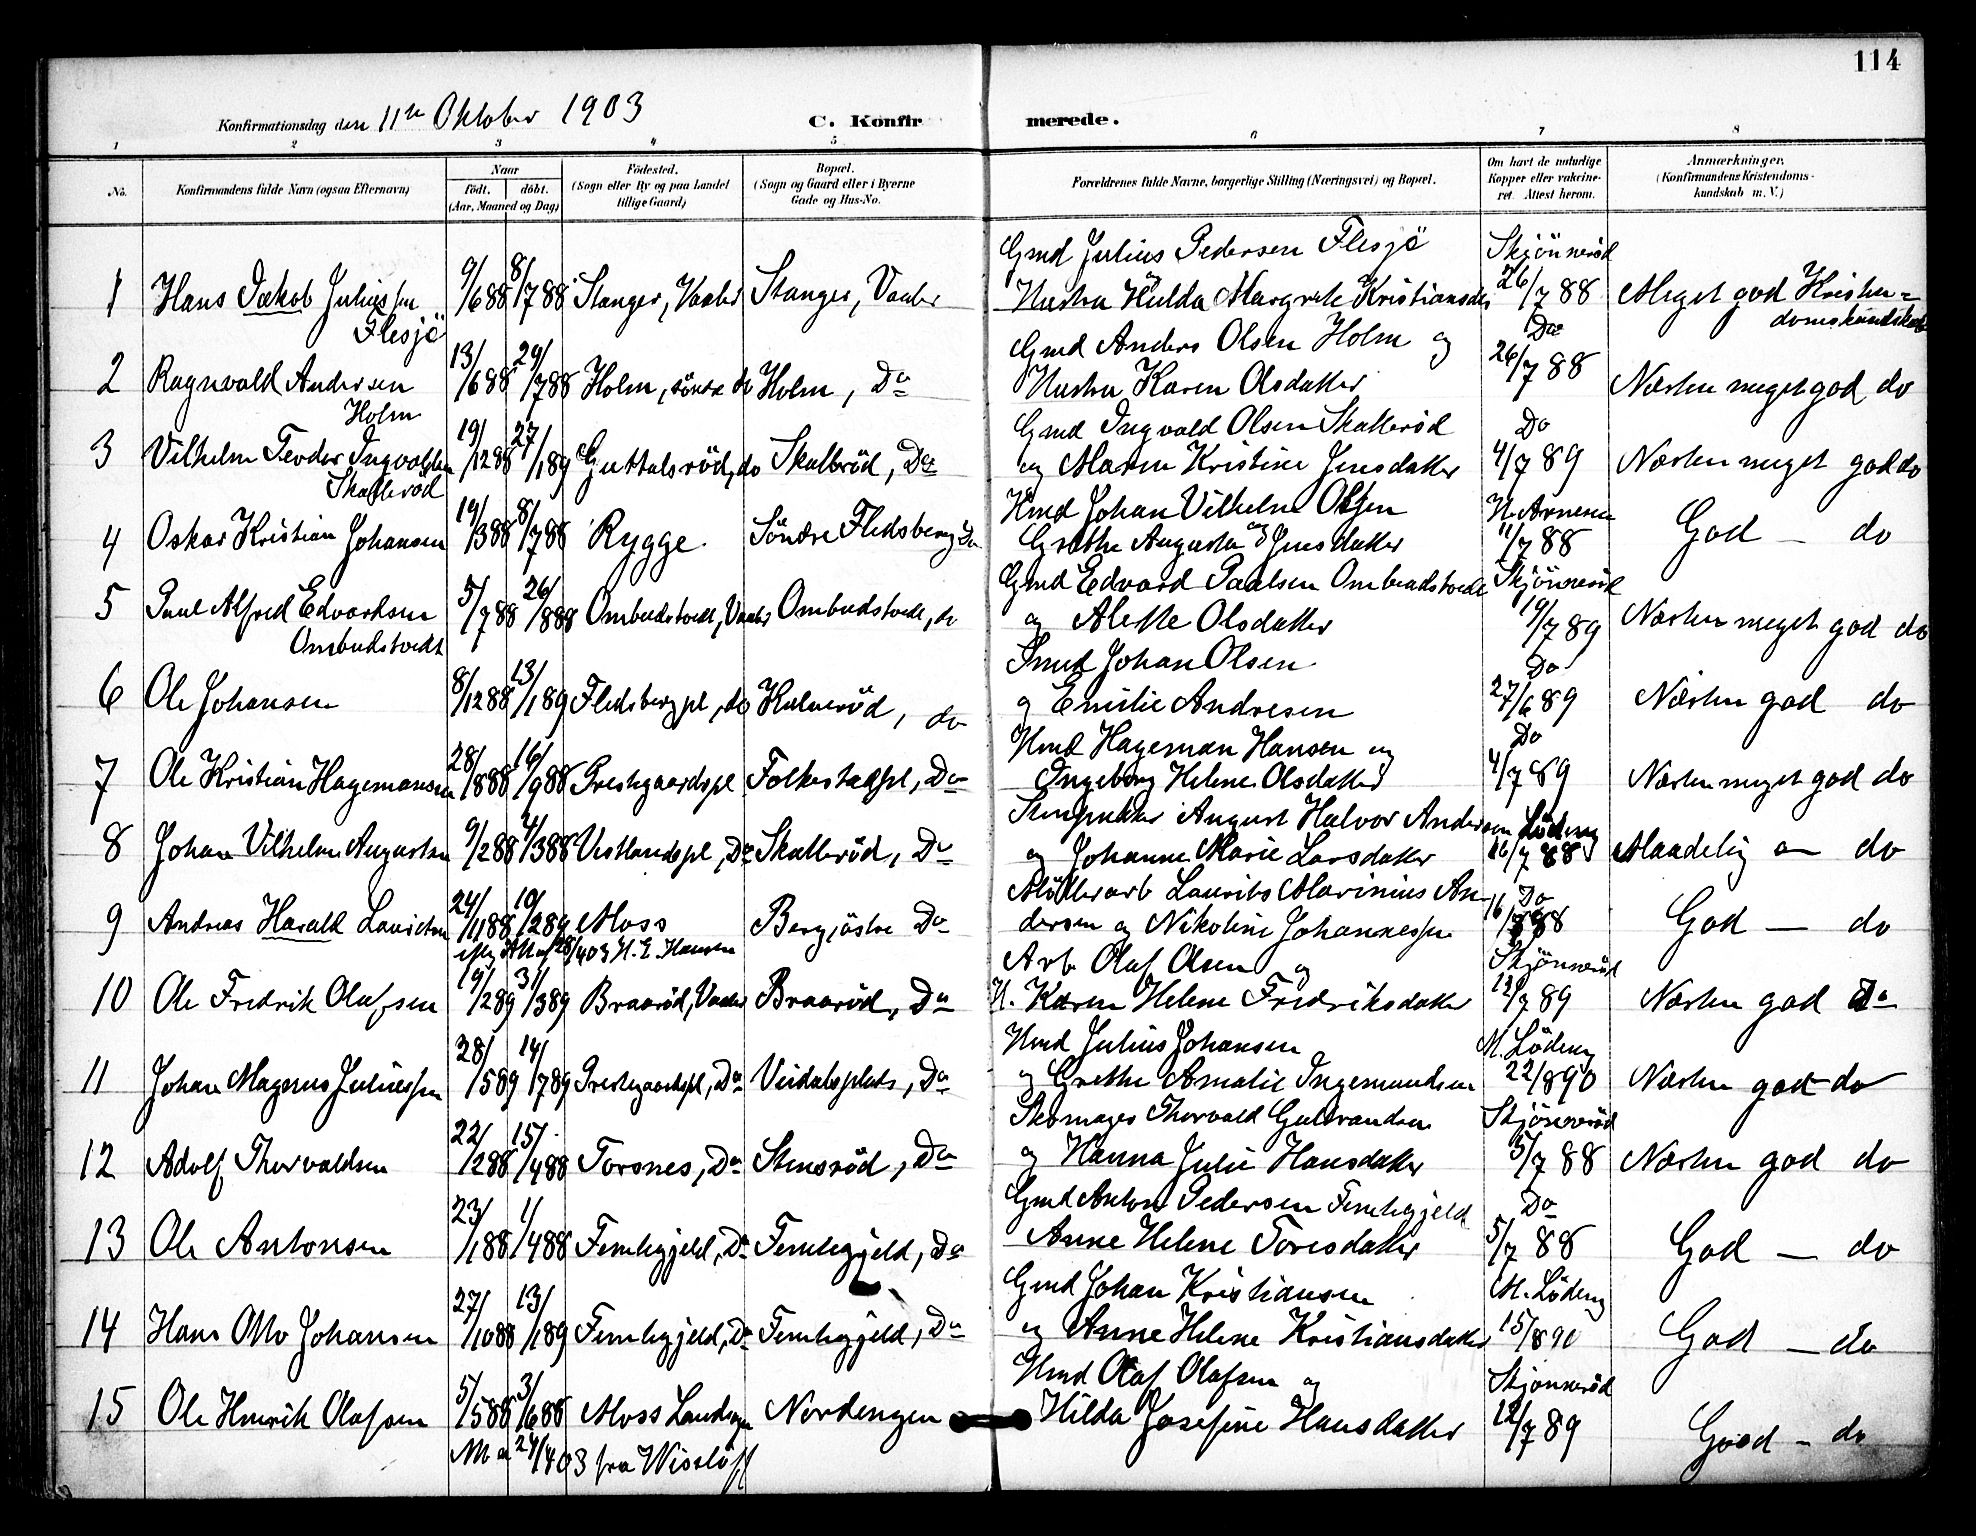 114
Konfirmationsdag den 11te Oktober 1903
C. Konfirmerede.
1 2 3 4 5 6 7 8
No.
Konfirmandens fulde Navn (ogsaa Efternavn)
Naar
födt. döbt.
(Aar, Maaned og Dag)
Födested.
(Sogn eller By og paa Landet tillige Gaard)
Bopæl.
(Sogn og Gaard eller i Byerne Gade og Hus-No.
Forældrenes fulde Navne, borgerlige Stilling (Næringsvei) og Bopæl.
Om havt de naturlige Kopper eller vakcineret. Attest herom.
Anmærkninger.
(Konfirmandens Kristendomskundskab m. V.)
1 Hans Jakob Juliussen Flesjö 9/6 88 8/7 88 Stanger, Vaaler Stanger, Vaaler Gmd Julius Pedersen Flesjö og Hustru Hulda Margrete Kristiansdtr Skjönneröd 26/7 88 Meget god Kristendomskundskab
2 Ragnvald Andersen Holm 13/6 88 29/7 88 Holm, söndre do Holm, Do Gmd Anders Olsen Holm og Hustru Karen Olsdatter Do 26/7 88 Næsten meget god do
3 Vilhelm Teodor Ingvaldsen Skalleröd 19/12 88 27/1 89 Guttalsröd, do Skalleröd, Do Gmd Ingvald Olsen Skalleröd og Maren Kristine Jensdatter Do 4/7 89 Næsten meget god do
4 Oskar Kristian Johansen 19/3 88 8/7 88 Rygge Söndre Fledsberg Do Hmd Johan Vilhelm Olsen og Grethe Augusta Jensdatter N. Arnesen 11/7 88 God - do
5 Paul Alfred Edvardsen Ombudstvedt 5/7 88 26/8 88 Ombudstvedt, Vaaler Ombudstvedt, do Gmd Edvard Paulsen Ombudstvedt og Alette Olsdatter Skjönneröd 19/7 89 Næsten meget god do
6 Ole Johansen 8/12 88 13/1 89 Fledsberg pl, do Hulneröd, do Smed Johan Olsen og Emilie Andresen Do 27/6 89 Næsten god do
7 Ole Kristian Hagemansen 28/8 88 16/9 88 Prestgaardspl Folkestadpl, Do Hmd Hageman Hansen og Ingeborg Helene Olsdatter Do 4/7 89 Næsten meget god do
8 Johan Vilhelm Augustsen 9/2 88 4/3 88 Vestlandspl, Do Skalleröd, Do August Halvor Andersen og Johanne Marie Larsdatter Löding 16/7 88 Maadelig - do
9 Andreas Harald Lauritsen 24/11 88 10/2 89 Moss Berg, östre Do Möllerarb Laurits Marinius Andersen og Nikoline Johannessen Do 16/7 88 God - do
efter Att af 28/4 03 H. E. Hansen
10 Ole Fredrik Olafsen 19/2 89 31/3 89 Braaröd, Vaaler Braaröd, Do Arb Olaf Olsen og H. Karen Helene Fredriksdatter Skjönneröd 12/7 89 Næsten god Do
11 Johan Magnus Juliussen 28/5 89 14/7 89 Prestegaardspl, Do Veidalsplads, Do Hmd Julius Johansen og Grethe Amalie Ingemundsen M. Löding 22/8 90 Næsten god do
12 Adolf Thorvaldsen 22/2 88 15/4 88 Torsnes, Do Stensröd, Do Skomager Thorvald Gulbrandsen og Hanna Julie Hansdatter Skjönneröd 5/7 88 Næsten god do
13 Ole Antonsen 23/1 88 1/4 88 Femhegjeld, Do Femhegjeld, Do Gmd Anton Pedersen Femhegjeld Anne Helene Toresdatter Do 5/7 88 God - do
14 Hans Otto Johansen 27/10 88 13/1 89 Femhegjeld, Do Femhegjeld, Do Gmd Johan Kristiansen og Anne Helene Kristiansdatter M. Löding 15/8 90 God - do
15 Ole Henrik Olafsen 5/5 88 3/6 88 Moss Landsogn Nordengen Hmd Olaf Olafsen og Hilda Josefine Hansdatter Skjönneröd 12/7 89 Good - do
24/4 03 fra Wisslöff